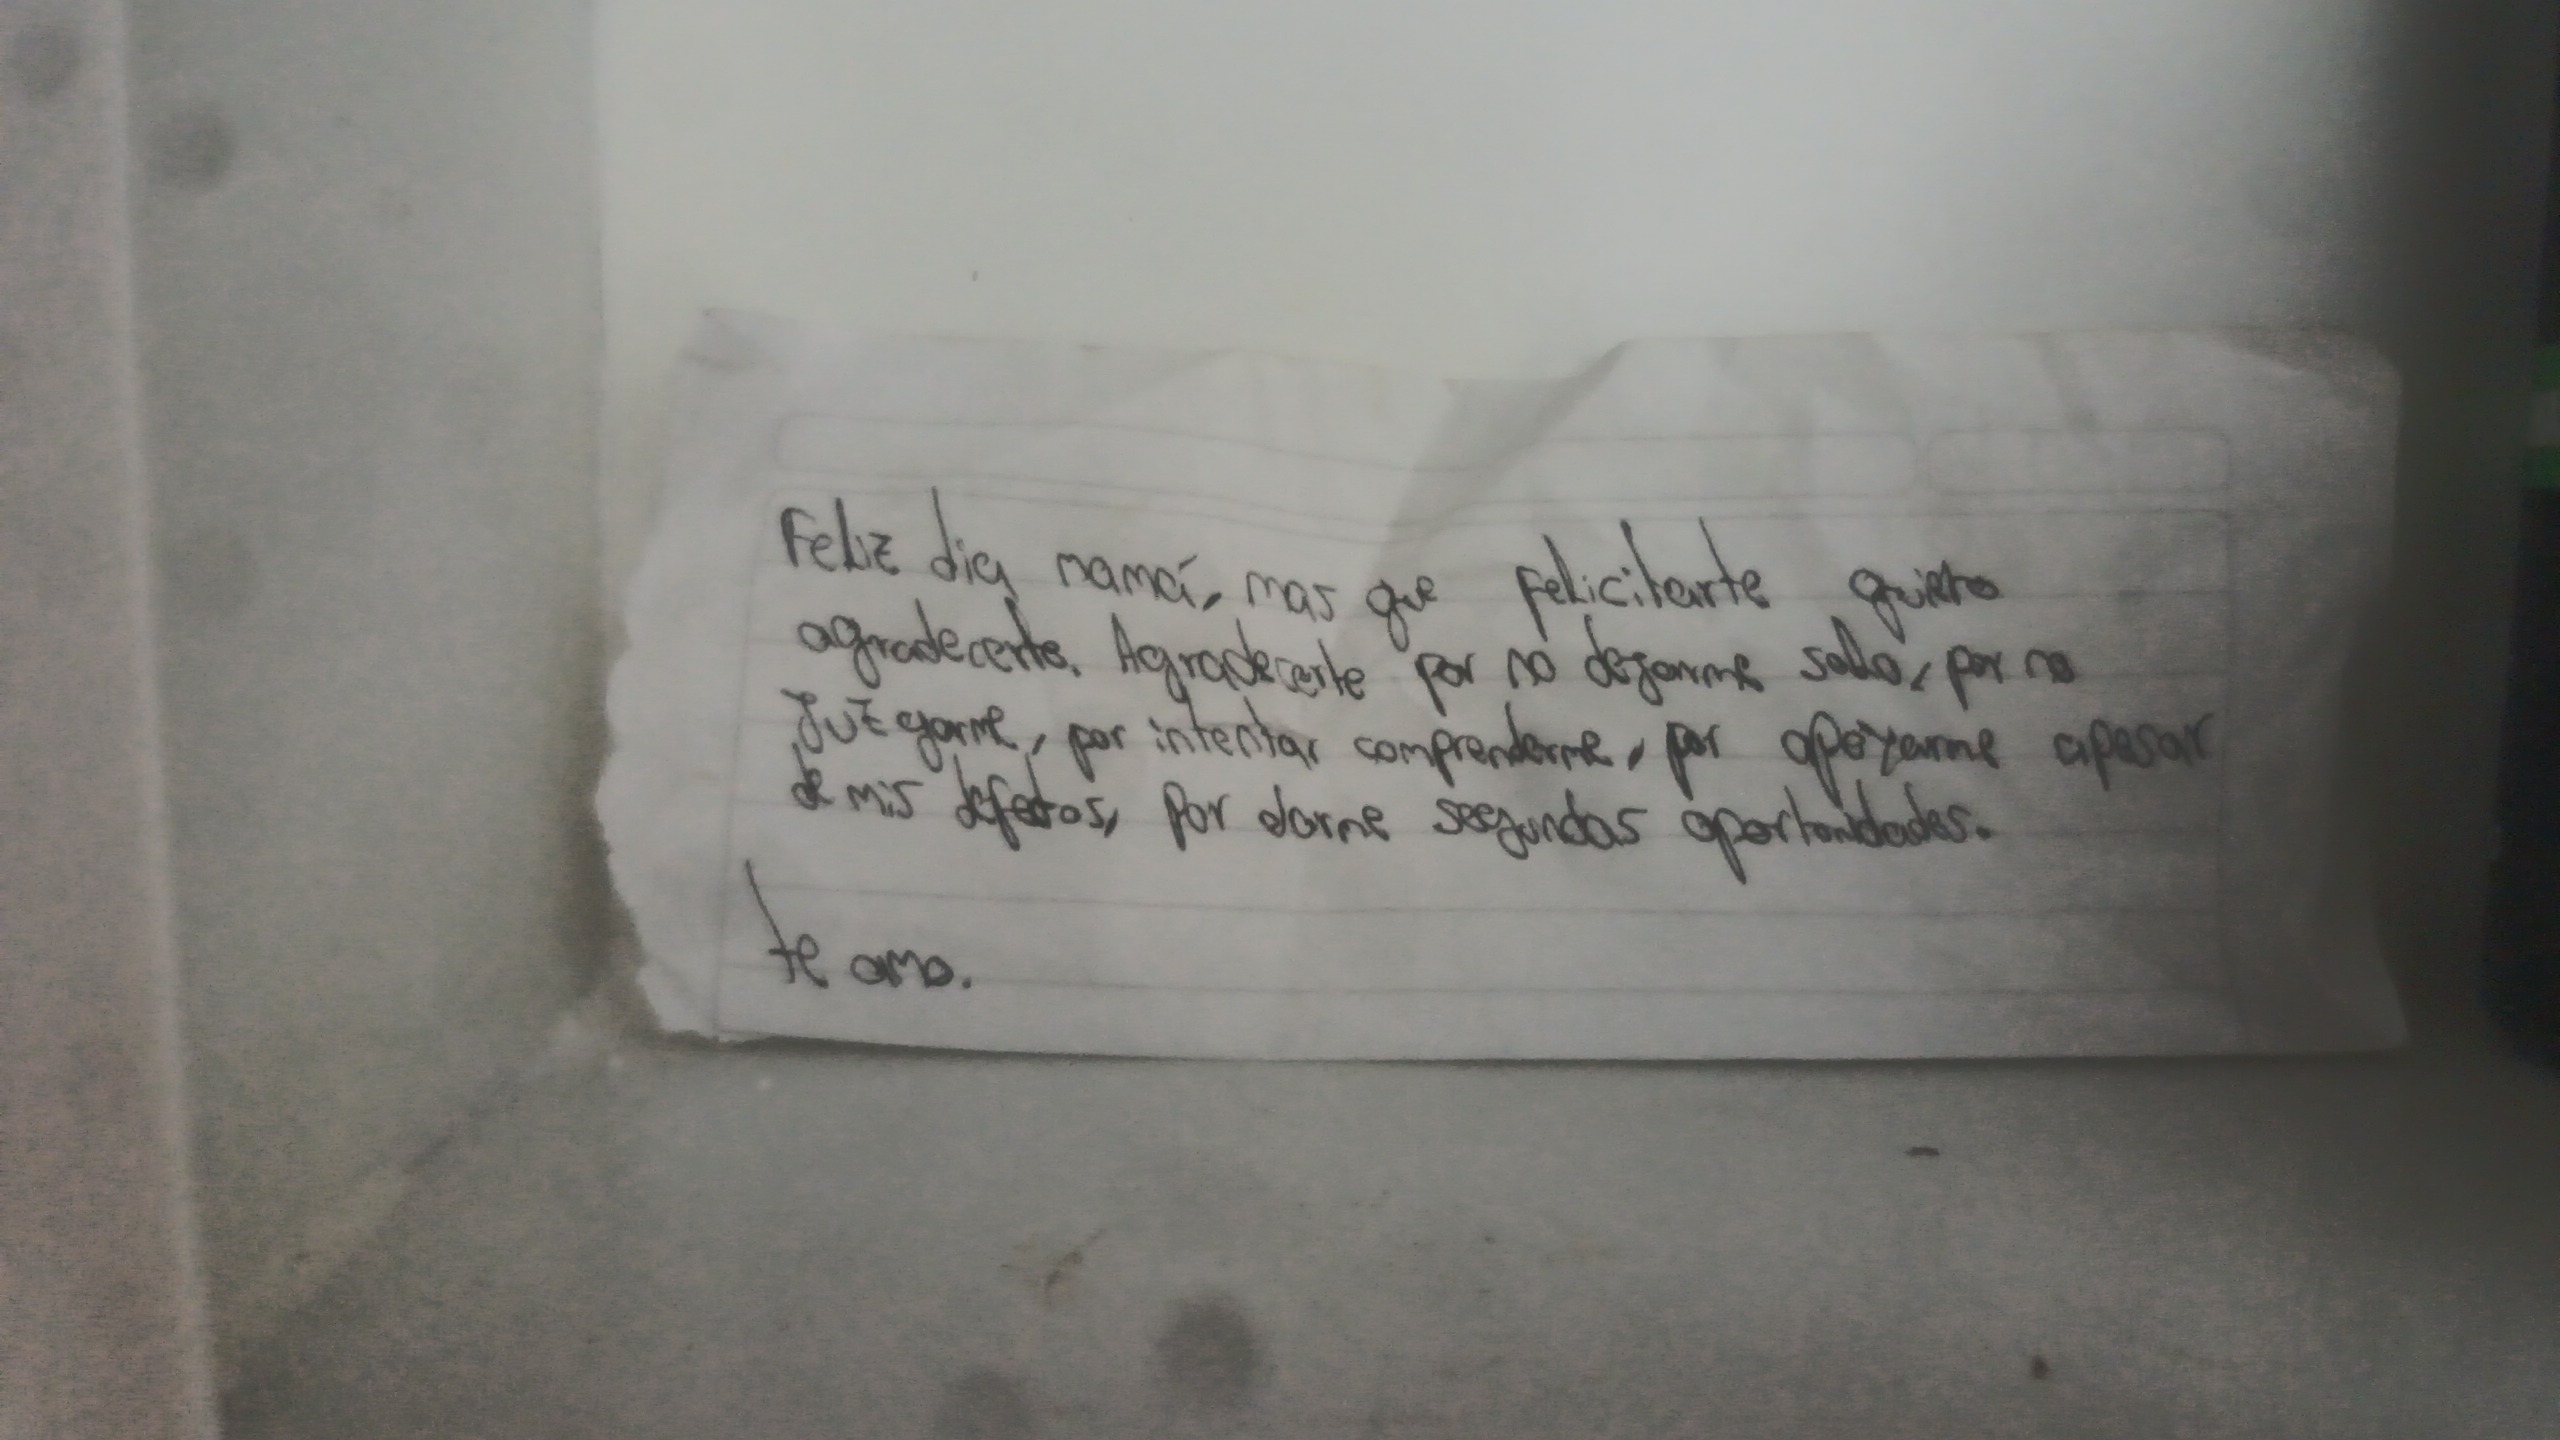 Feliz dia mamá, mas que felicitarte quiero
agradecerte. Agradecerte por no dejarme solo, por no
Juzgarme, por intentar comprenderme, por apoyarme apesar
de mis defectos, por darme segundas oportunidades.
te amo.